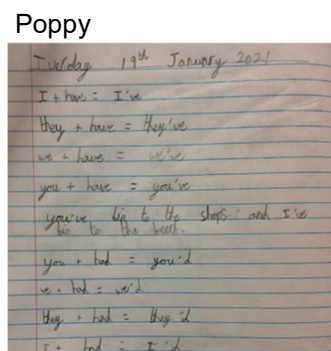 Poppy
Tuesday 19th January 2021
I + have = I've
they + have = they've
we + have = we've
you + have = you've
you've bin to the shops and I've
bin to the beach.
you + had = you'd
we + had = we'd
they + had = they'd
I + had = I'd